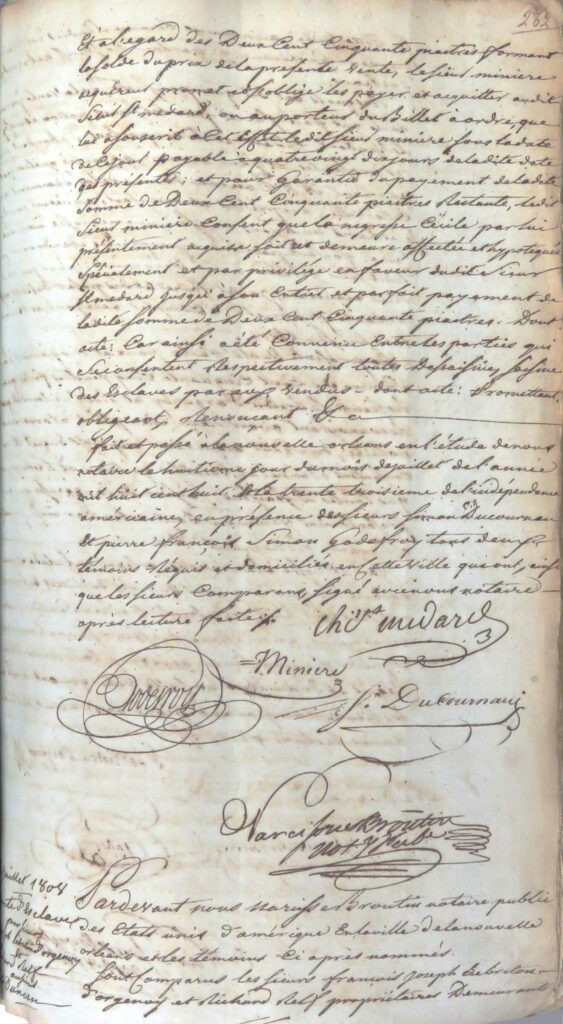 282
Et à l'égard des Deux Cent Cinquante piastres formant
le solde du prix de la présente vente, le sieur miniere
acquéreur promet et s'oblige les payer et acquitter au dit
Sieur St medard, ou au porteur du Billet à ordre, que
lui a souscrit à cet effet le dit sieur miniere sous la date
de ce jour payable a quatre vingt dix jours de la dite date
des présentes; et pour Garantie du payement de la dite
Somme de Deux Cent Cinquante piastres Restante, le dit
Sieur miniere Consent que la negresse Cécile par lui
présentement acquise soit et demeure affectée et hypotequée
Spécialement et par privilége en faveur du dit Sieur
St medard jusqu'a son Entier et parfait payement de
la dite somme de Deux Cent Cinquante piastres. Dont
acte; Car ainsi a été Convenu Entre les parties qui
Se consentent Respectivement toutes Dessaisines, saisine
des Esclaves par eux Vendus - dont acte: Promettant,
obligeant, Renonçant &a
fait et passé à la nouvelle orléans en l'étude de nous
notaire le huitieme jour du mois de juillet de l'année
mil huit cent huit & la trente troisieme de l'indépendance
américaine, en présence des sieurs simon Ducournau
Et pierre françois Simon Godefroy tous deux
témoins Requis et domiciliés en Cette Ville qui ont, ainsi
que les sieurs Comparans, signé avec nous notaire
après lecture faite
medard
Miniere
Godefroy
Sn Ducournau
Narcisse Broutin
not. Pub.
juillet 1808
d'Esclaves
Pardevant nous Narcisse Broutin notaire public
des Etats unis d'amérique En la ville de la nouvelle
orléans et les témoins Ci après nommés.
Sont Comparus les sieurs françois Joseph Lebreton
D'orgenoy et Richard Relf propriétaires Demeurants